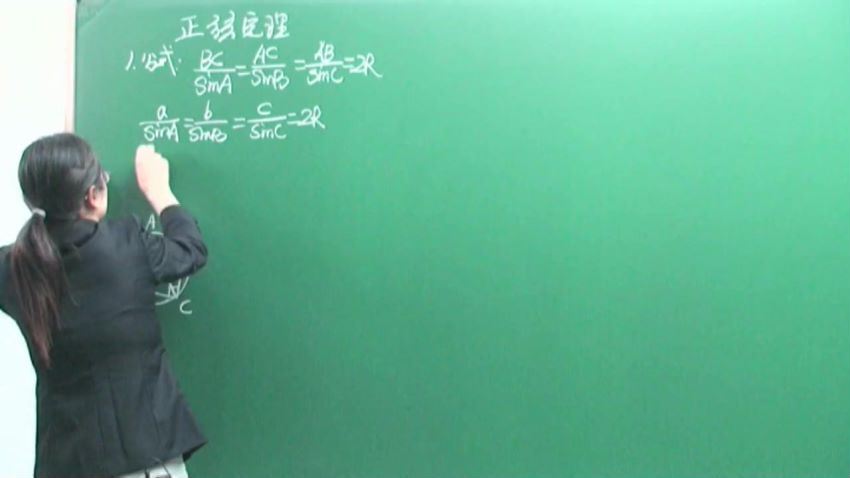 正弦定理
1.公式: BC/SinA = AC/SinB = AB/SinC = 2R
a/SinA = b/SinB = c/SinC = 2R
A
C